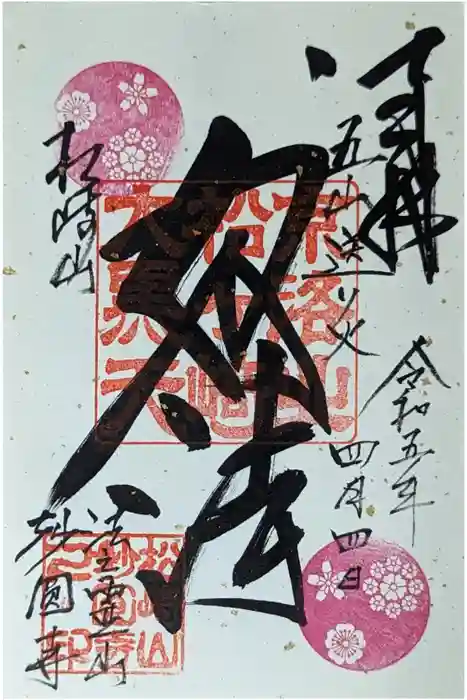 奉拝
五山送り火
令和五年
四月四日
妙法
松崎山
法之霊山
妙圓寺
京洛北
松ヶ崎
大黒天
松崎山
妙圓寺